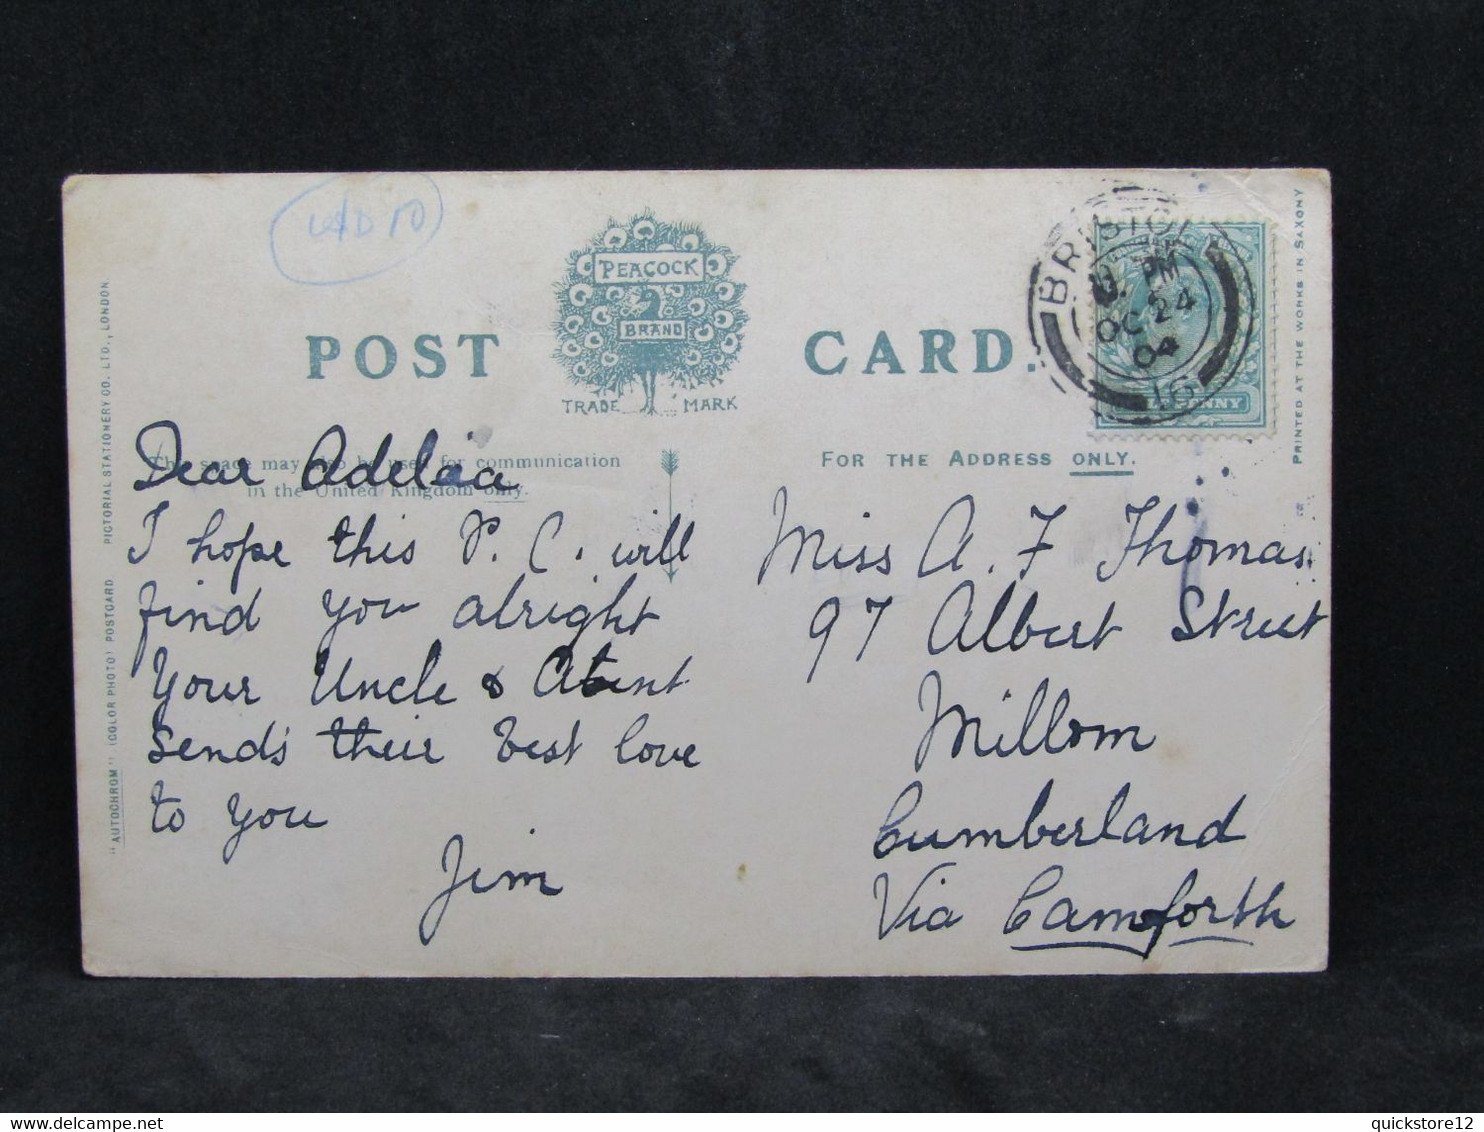 PEACOCK
BRAND
TRADE MARK
POST CARD.
This space may also be used for communication
in the United Kingdom only.
FOR THE ADDRESS ONLY.
Dear Adelaia
I hope this P. C. will
find you alright
Your Uncle & Aunt
sends their best love
to you
Jim
BRISTOL
PM
OC 24
04
16
HALFPENNY
Miss A. F Thomas
97 Albert Street
Millom
Cumberland
Via Carnforth
"AUTOCHROM" (COLOR PHOTO) POSTCARD PICTORIAL STATIONERY CO. LTD., LONDON
PRINTED AT THE WORKS IN SAXONY
quickstore12